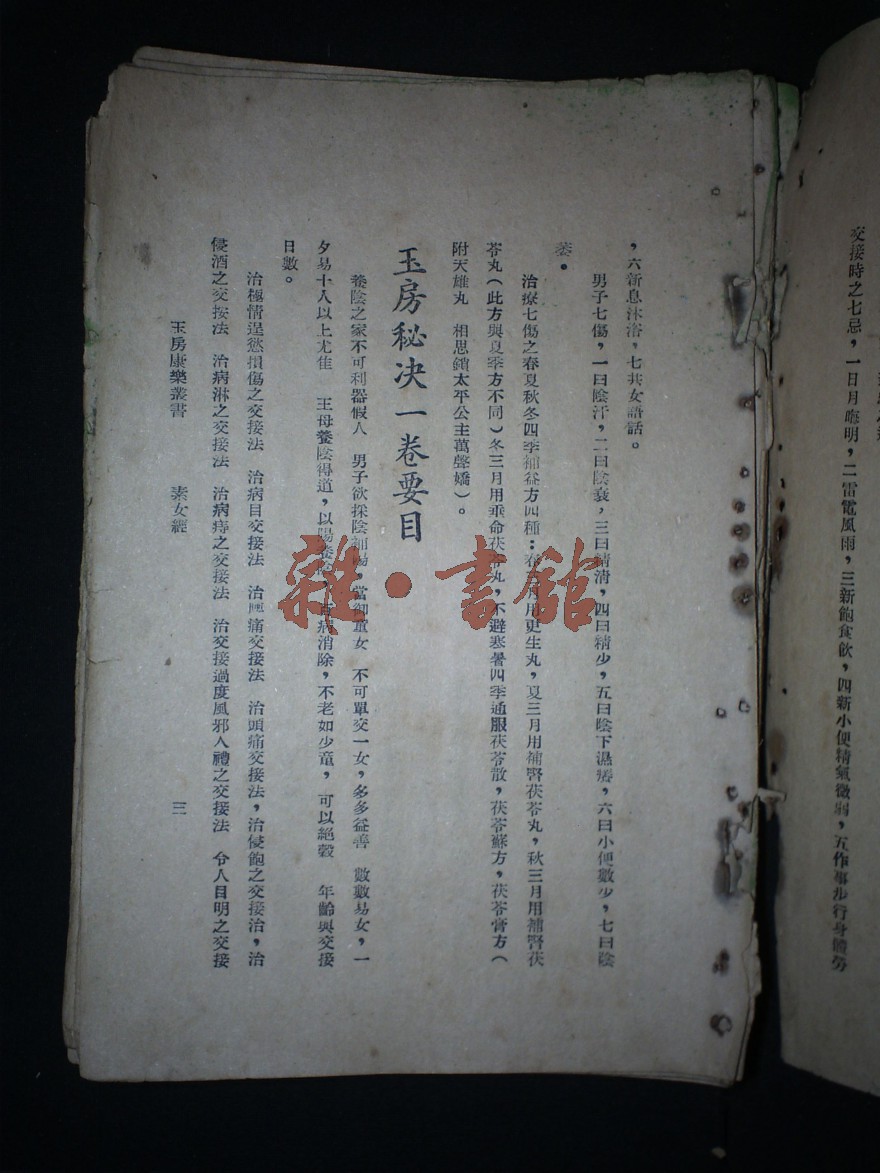 交接時之七忌，一日月晦明，二雷電風雨，三新飽食飲，四新小便精氣微弱，五作事步行身體勞
，六新息沐浴，七共女語話。
男子七傷，一曰陰汗，二曰陰衰，三曰精清，四曰精少，五曰陰下濕癢，六曰小便數少，七曰陰
萎。
治療七傷之春夏秋冬四季補益方四種：春三月用更生丸，夏三月用補腎茯苓丸，秋三月用補腎茯
苓丸（此方與夏季方不同）冬三月用垂命茯苓丸，不避寒暑四季通服茯苓散，茯苓蘇方，茯苓膏方（
附天雄丸　相思鎖太平公主萬聲嬌）。
玉房秘决一卷要目
養陰之家不可利器假人　男子欲採陰補陽，當御童女　不可單交一女，多多益善　數數易女，一
夕易十人以上尤佳　王母養陰得道，以陽養陰，百病消除，不老如少童，可以絕穀　年齡與交接
日數。
治極情逞慾損傷之交接法　治病目交接法　治腰痛交接法　治頭痛交接法，治侵飽之交接治，治
侵酒之交按法　治病淋之交接法　治病痔之交接法　治交接過度風邪人禮之交接法　令人目明之交接
玉房康樂叢書　素女經　三
雜·書館